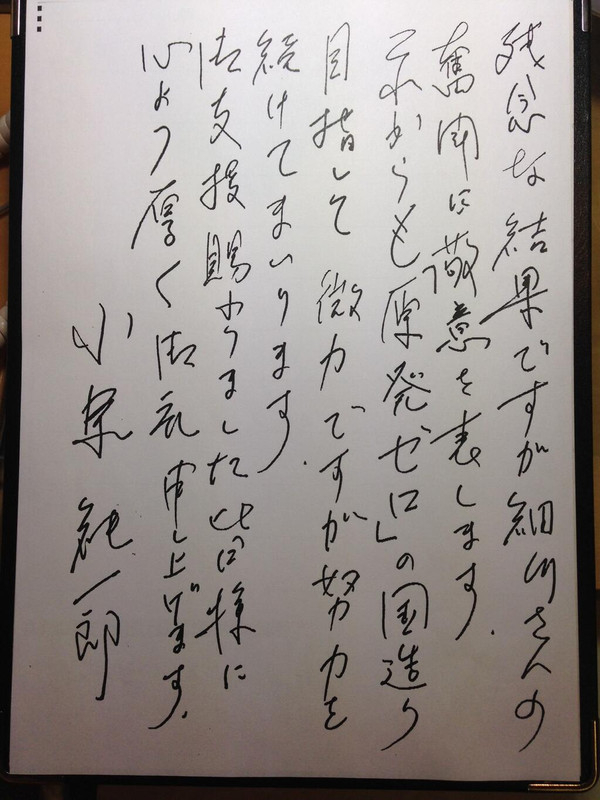 残念な結果ですが細川さんの
奮闘に敬意を表します.
これからも「原発ゼロ」の国造り
目指して微力ですが努力を
続けてまいります.
御支援賜りました皆様に
心より厚く御礼申し上げます.
小泉純一郎